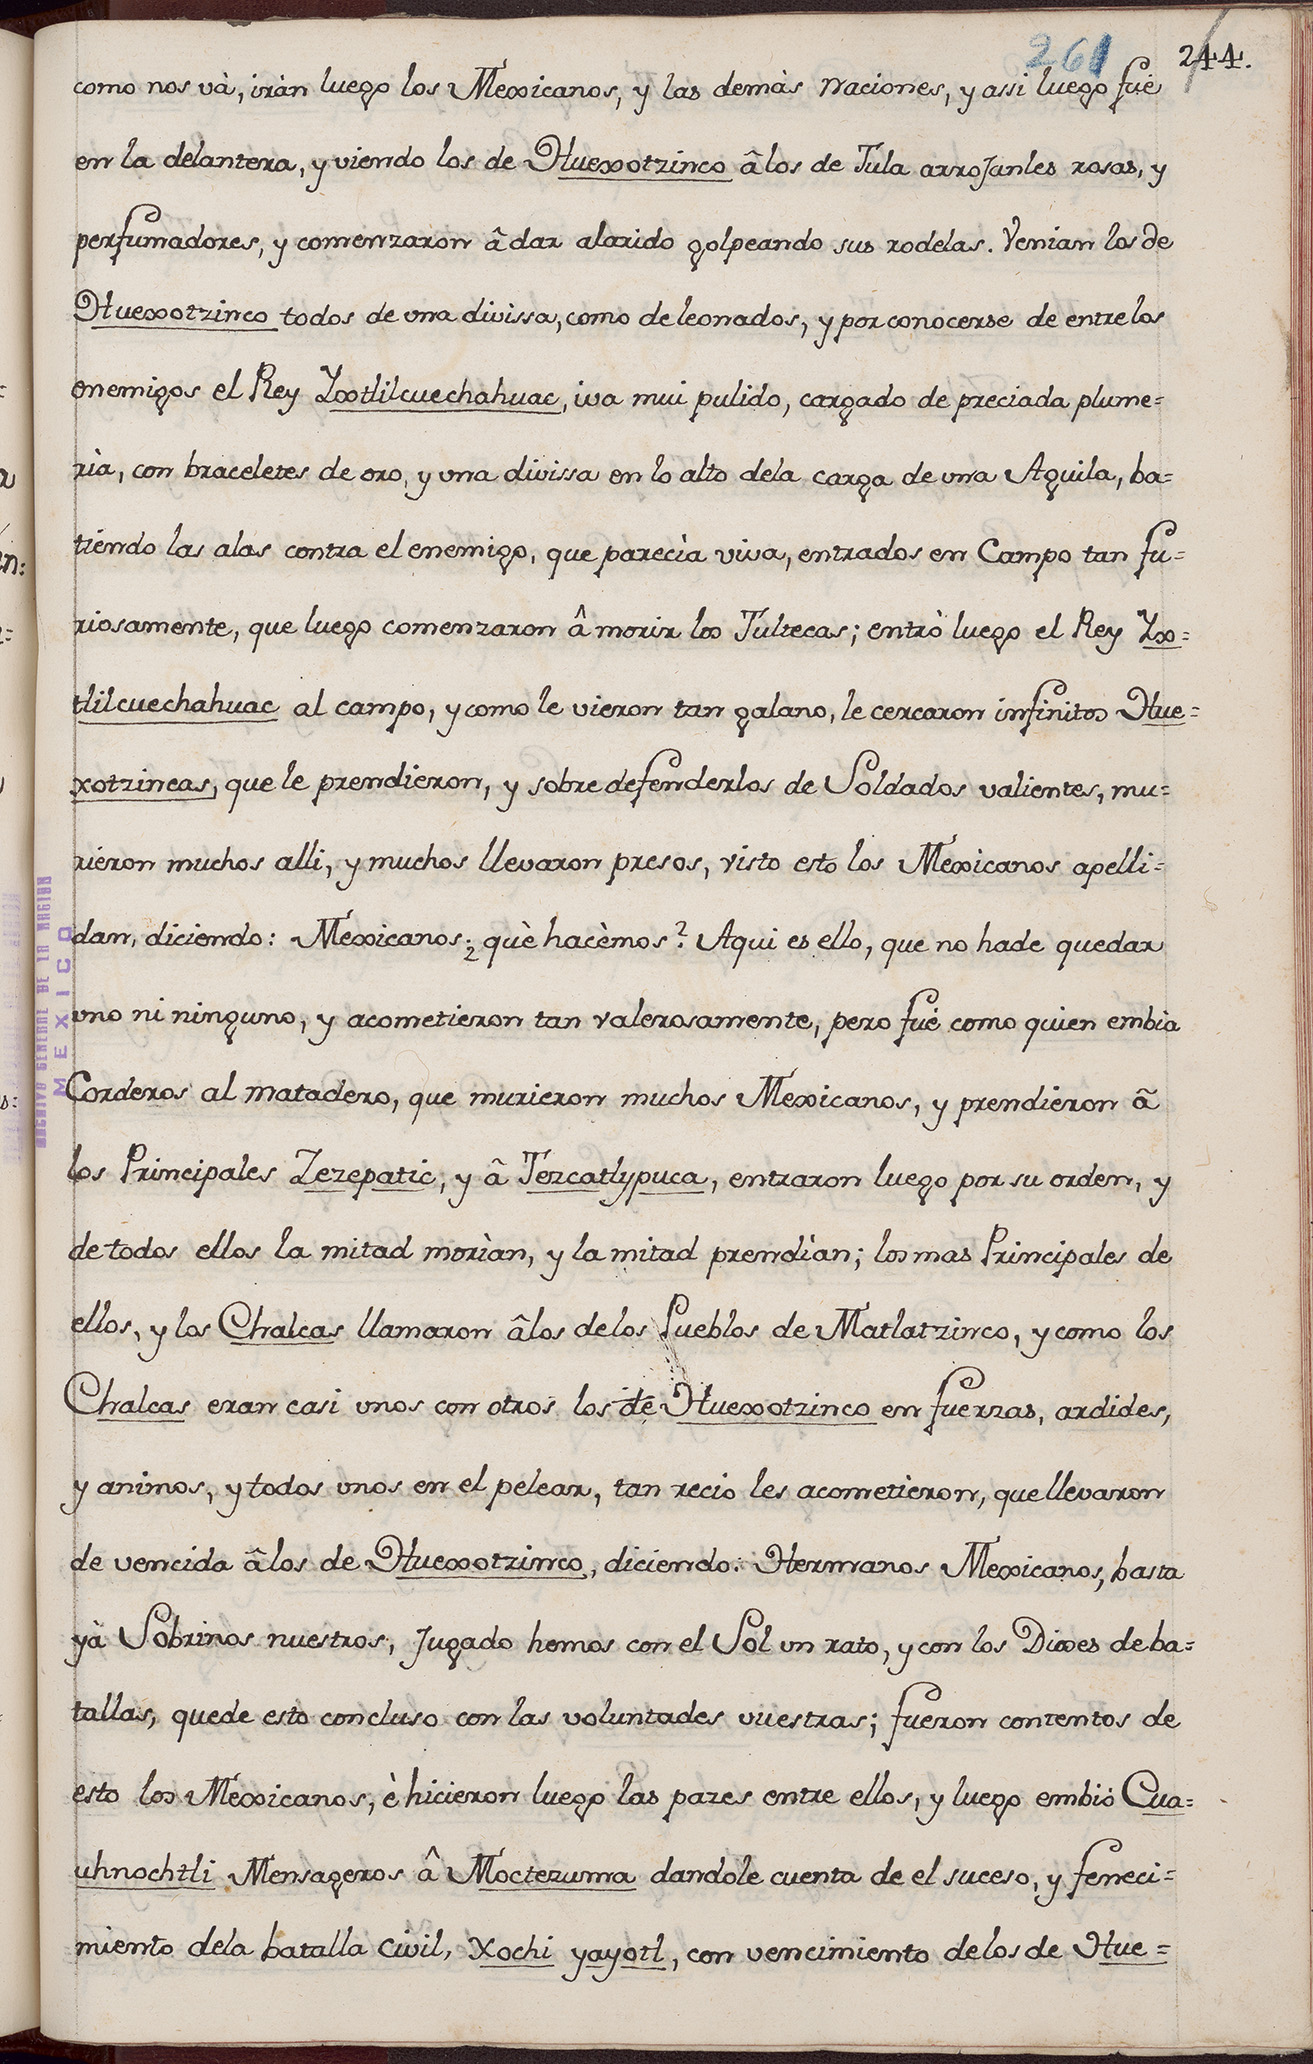 261 244.
como nos và, iràn luego los Mexicanos, y las demàs Naciones, y assi luego fué
en la delantera, y viendo los de Huexotzinco â los de Tula arroJanles rosas, y
perfumadores, y comenzaron â dar alarido golpeando sus rodelas. Venian los de
Huexotzinco todos de una divissa, como de leonados, y por conocerse de entre los
enemigos el Rey Yxtlilcuechahuac, iva mui pulido, cargado de preciada plume=
rìa, con braceletes de oro, y una divissa en lo alto dela carga de una Aguila, ba=
tiendo las alas contra el enemigo, que parecìa viva, entrados en Campo tan fu=
riosamente, que luego comenzaron â morir los Tultecas; entrò luego el Rey Yx=
tlilcuechahuac al campo, y como le vieron tan galano, le cercaron infinitos Hue=
xotzincas, que le prendieron, y sobre defenderlos de Soldados valientes, mu=
rieron muchos alli, y muchos llevaron presos, visto esto los Mexicanos apelli=
dan, diciendo: Mexicanos, ¿què hacèmos? Aqui es ello, que no hade quedar
uno ni ninguno, y acometieron tan valerosamente, pero fué como quien embia
Corderos al matadero, que murieron muchos Mexicanos, y prendieron â
los Principales Zezepatic, y â Tezcatlypuca, entraron luego por su orden, y
de todos ellos la mitad morìan, y la mitad prendìan; los mas Principales de
ellos, y los Chalcas llamaron â los de los Pueblos de Matlatzinco, y como los
Chalcas eran casi unos con otros los de Huexotzinco en fuerzas, ardides,
y animos, y todos unos en el pelear, tan recio les acometieron, que llevaron
de vencida â los de Huexotzinco, diciendo: Hermanos Mexicanos, basta
yà Sobrinos nuestros, Jugado hemos con el Sol un rato, y con los Dioses de ba=
tallas, quede esto concluso con las voluntades vuestras; fueron contentos de
esto los Mexicanos, è hicieron luego las pazes entre ellos, y luego embió Cua=
uhnochtli Mensageros â Moctezuma dandole cuenta de el suceso, y feneci=
miento dela batalla civil, Xochi yayotl, con vencimiento de los de Hue=
ARCHIVO GENERAL DE LA NACION
MEXICO